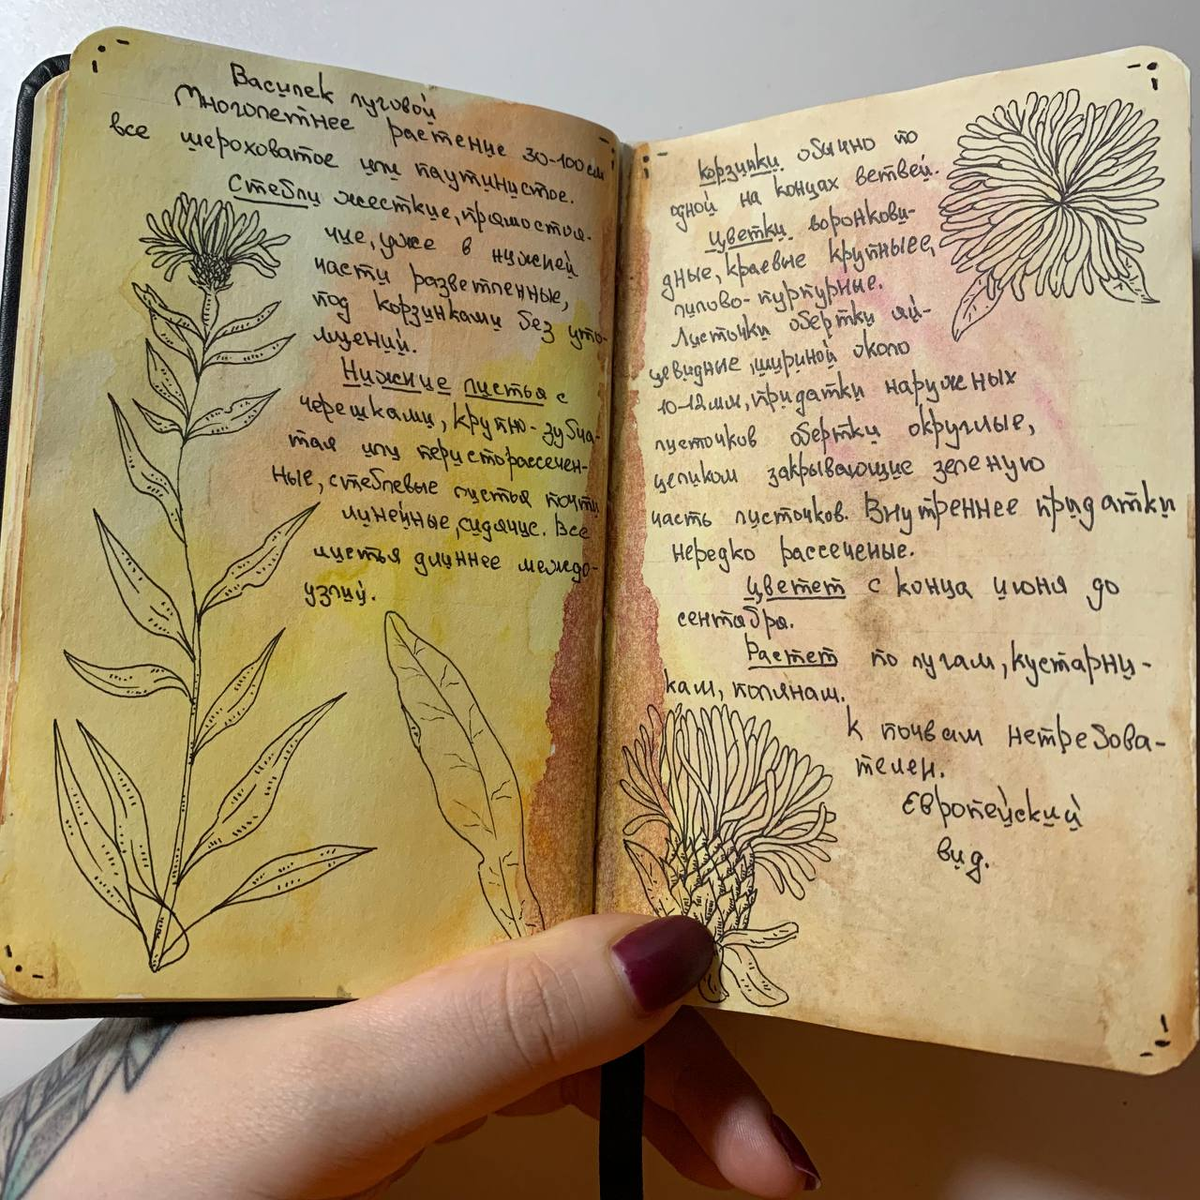 Василек луговой
Многолетнее растение 30-100см
все шероховатое или паутинистое.
Стебли жесткие, прямостоя-
чие, уже в нижней
части разветленные,
под корзинками без уто-
лщений.
Нижние листья с
черешками, крупно-зубча-
тая или перисторассечен-
ные, стеблевые листья почти
линейные, сидячие. Все
листья длиннее междо-
узлий.
корзинки обычно по
одной на концах ветвей.
Цветки воронкови-
дные, краевые крупныее,
лилово-пурпурные.
Листочки обертки яй-
цевидные, шириной около
10-12мм, придатки наружных
листочков обертки округлые,
целиком закрывающие зеленую
часть листочков. Внутреннее придатки
нередко рассеченые.
Цветет с конца июня до
сентября.
Растет по лугам, кустарни-
кам, полянам.
К почвам нетребова-
телен.
Европейский
вид.